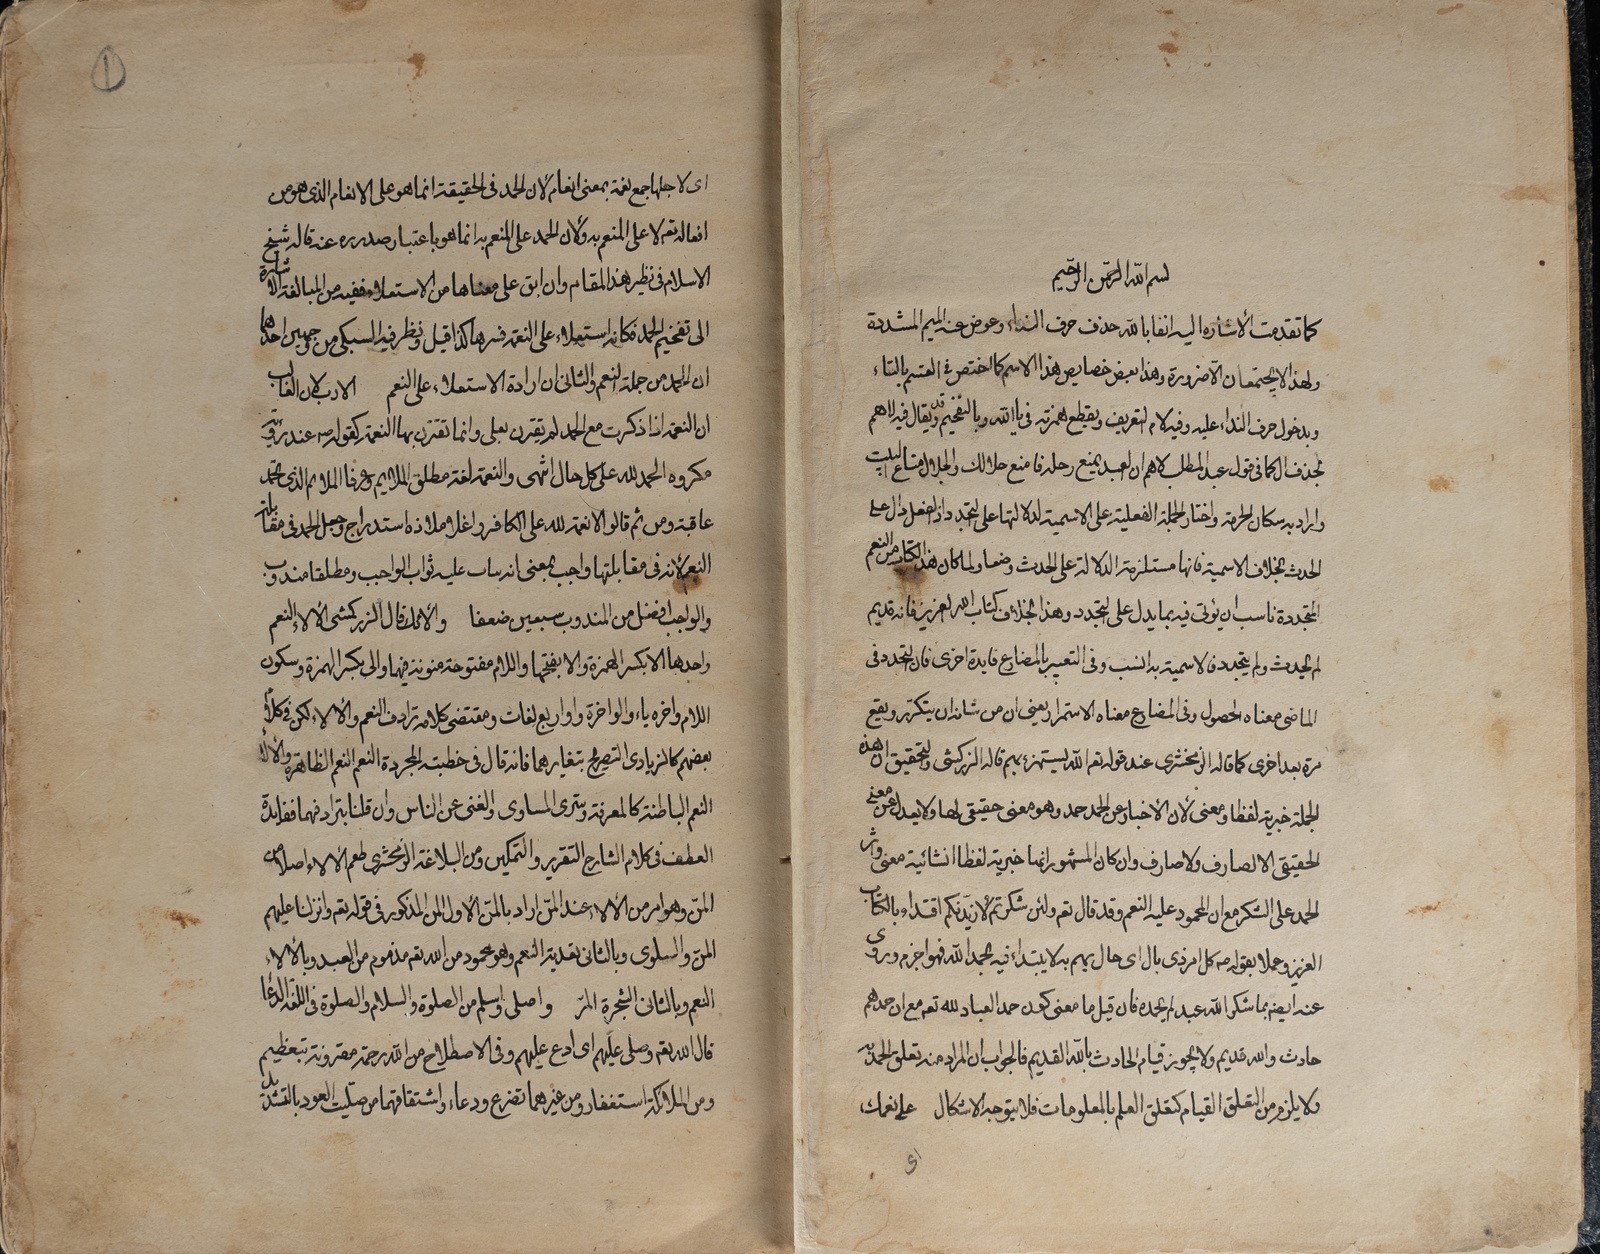 بسم الله الرحمن الرحيم
كما تقدمت الاشارة اليه انفا بالله حذف حرف النداء وعوض عنه الميم المشددة
ولهذا لا يجتمعان الا ضرورة وهذا بعض خصايص هذا الاسم كما اختص في القسم بالتاء
وبدخول حرف النداء عليه وفيه لام التعريف وبقطع همزته في يا الله وبالتفخيم وقد يقال فيه لاهم
بحذف ال كما في قول عبد المطلب لاهم ان العبد يمنع رحله فامنع حلالك والحلال متاع البيت
واراد به سكان الحرم واختار الجملة الفعلية على الاسمية لدلالتها على التجدد اذ الفعل دال على
الحدث بخلاف الاسمية فانها مستلزمة الدلالة على الحدث وضعا ولما كان هذا الكتاب من النعم
المتجددة ناسب ان يؤتى فيه بما يدل على التجدد وهذا بخلاف كتاب الله العزيز فانه قديم
لم يحدث ولم يتجدد فالاسمية به انسب وفي التعبير بالمضارع فايدة اخرى فان التجدد في
الماضي معناه الحصول وفي المضارع معناه الاستمرار يعني ان من شانه ان يتكرر ويقع
مرة بعد اخرى كما قاله الزمخشري عند قوله تعم الله يستهزئ بهم قاله الزركشي والتحقيق ان هذه
الجملة خبرية لفظا ومعنى لان الاخبار عن الحمد حمد وهو معنى حقيقي لها ولا يعدل عن معنى
الحقيقي الا لصارف ولا صارف وان كان المشهور انها خبرية لفظا انشائية معنى واثر
الحمد على الشكر مع ان المحمود عليه النعم وقد قال تعم ولئن شكرتم لازيدنكم اقتداء بالكتاب
العزيز وعملا بقوله صم كل امر ذي بال اي حال يهم به لا يبتداء فيه بحمد الله فهو اجزم وروى
عنه ايضم ما شكر الله عبد لم يحمده فان قيل ما معنى كون حمد العباد لله تعم مع ان حمدهم
حادث والله قديم ولا يجوز قيام الحادث بالله القديم فالجواب ان المراد منه تعلق الحمد به
ولا يلزم من التعلق القيام كتعلق العلم بالمعلومات فلا يتوجه الاشكال على نعمك
اى
اى لاجلها جمع نعمة بمعنى انعام لان الحمد في الحقيقة انما هو على الانعام الذي هو من
افعاله تعم لا على المنعم به ولان الحمد على المنعم به انما هو باعتبار صدوره عنه قاله شيخ
الاسلام في نظير هذا المقام وان ابق على معناها من الاستعلاء ففيه من المبالغة الاشارة
الى تفخيم الحمد فكانه استعلاء على النعمة فسرها كذا قيل ونظر فيه السبكي من جهين احدهما
ان الحمد من جملة النعم والثاني ان ارادة الاستعلاء على النعم الادب لان الغالب
ان النعمة اذا ذكرت مع الحمد لم يقترن بعلى وانما تقترن بها النعمة كقوله صم عند رؤية
مكروه الحمد لله على كل حال انتهى والنعمة لغة مطلق الملايم وعرفا الملايم الذي تحمد
عاقبته ومن ثم قالوا لا نعمة لله على الكافر وانما ملاذه استدراج وجعل الحمد في مقابلة
النعم لانه في مقابلتها واجب بمعنى انه يثاب عليه ثواب الواجب ومطلقا مندوب
والواجب افضل من المندوب بسبعين ضعفا والائك قال الزركشي الالاء النعم
واحدها الا بكسر الهمزة والا بفتحها واللام مفتوحة منونة فيهما والى بكسر الهمزة وسكون
اللام واخره ياء والو اخره واو اربع لغات ومقتضى كلامه ترادف النعم والالاء لكن في كلام
بعضهم كالزيادى التصريح بتغايرهما فانه قال في خطبته المجردة النعم النعم الظاهرة والالاء
النعم الباطنة كالمعرفة وسترى المساوى والغنى عن الناس وان قلنا بترادفهما ففايدة
العطف في كلام الشارح التقرير والتمكين ومن البلاغة الزمخشري طعم الالاء احلا من
المن وهو امر من الالاء عند المن اراد بالمن الاول المن المذكور في قوله تعم وانزلنا عليهم
المن والسلوى وبالثاني تعديد النعم وهو محمود من الله تعم مذموم من العبد وبالالاء
النعم وبالثاني الشجرة المر واصلى واسلم من الصلوة والسلام والصلوة في اللغة الدعا
قال الله تعم وصلى عليهم اى ادع عليهم وفي الاصطلاح من الله رحمة مقرونة بتعظيم
ومن الملائكة استغفار ومن غيرهما تضرع ودعاء واشتقاقهما من صليت العود بالتشديد